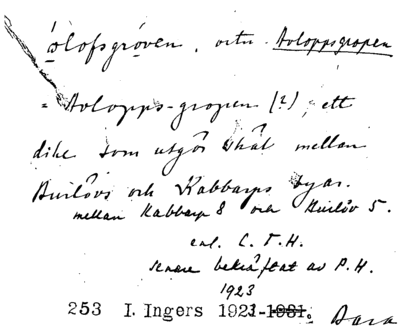 ölofsgröven, ortn. Avloppsgropen
= Avlopps-gropen (?), ett
dike som utgör skäl mellan
Burlövs och Kabbarps byar.
mellan Kabbarp 8 och Burlöv 5.
enl. C. T. H.
senare bekräftat av P. H.
1923
253 I. Ingers 1921-1931.
Bara